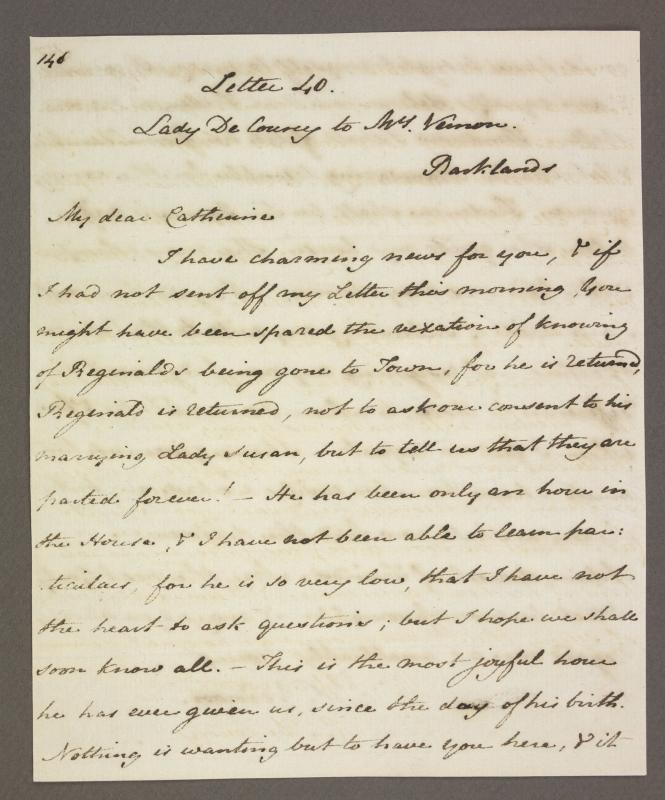 146
Letter 40.
Lady De Courcy to Mrs. Vernon.
Parklands
My dear Catherine
I have charming news for you, & if
I had not sent off my Letter this morning, you
might have been spared the vexation of knowing
of Reginald's being gone to Town, for he is returned,
Reginald is returned, not to ask our consent to his
marrying Lady Susan, but to tell us that they are
parted forever! - He has been only an hour in
the House, & I have not been able to learn par:
:ticulars, for he is so very low, that I have not
the heart to ask questions; but I hope we shall
soon know all. - This is the most joyful hour
he has ever given us, since the day of his birth.
Nothing is wanting but to have you here, & it